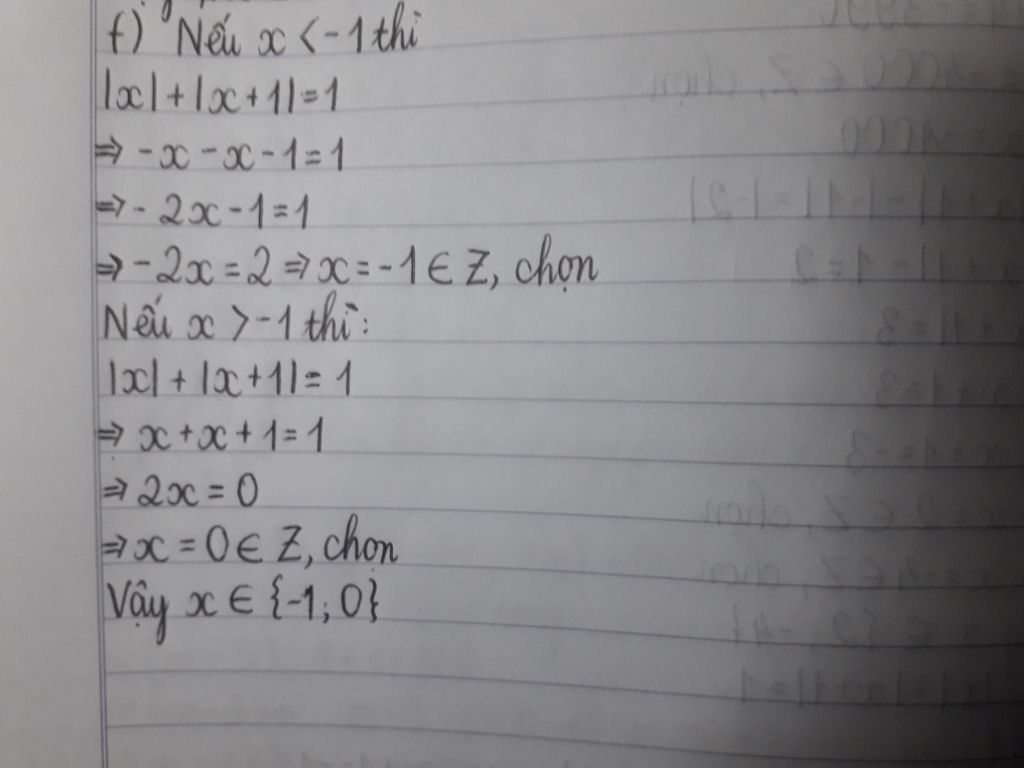 f) Nếu x < -1 thì
|x| + |x + 1| = 1
⇒ -x - x - 1 = 1
⇒ - 2x - 1 = 1
⇒ - 2x = 2 ⇒ x = -1 ∈ Z, chọn
Nếu x > -1 thì:
|x| + |x + 1| = 1
⇒ x + x + 1 = 1
⇒ 2x = 0
⇒ x = 0 ∈ Z, chọn
Vậy x ∈ {-1; 0}